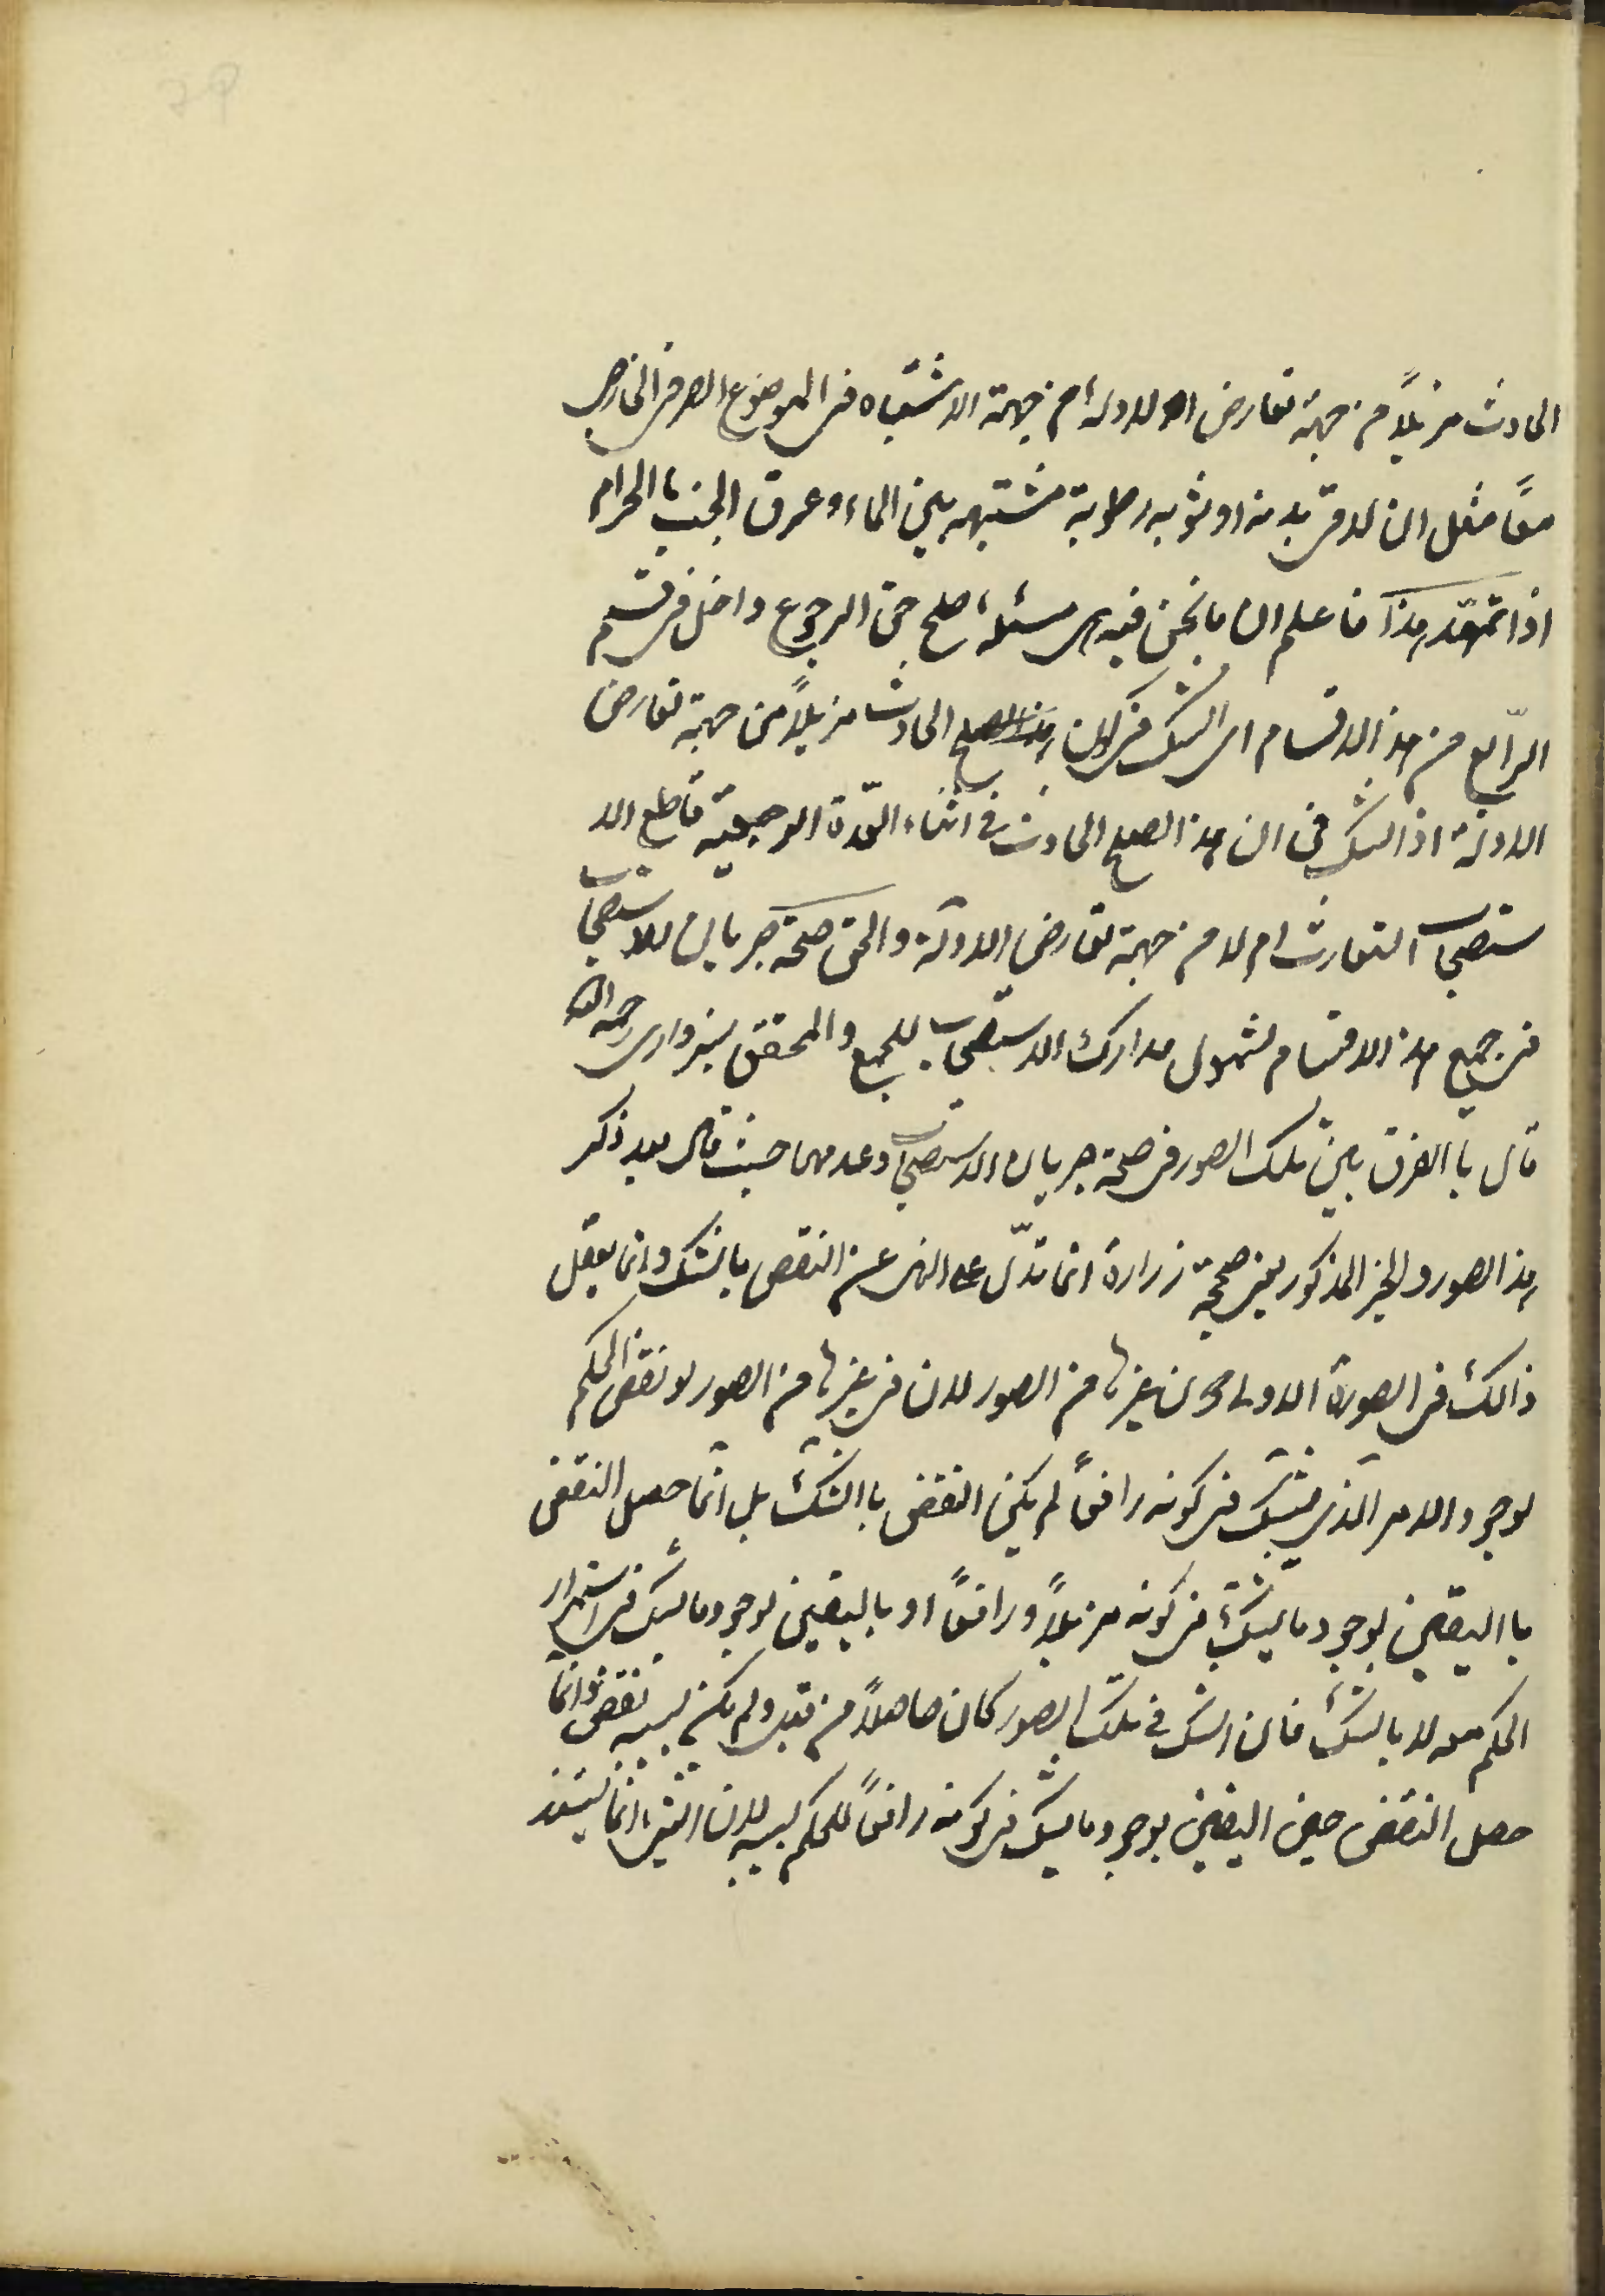 الحادث مزیلاً من جهة تعارض الادلة ام جهة الاشتباه فی الموضوع الصرف الخارجی
معاً مثل ان لاقی بدنه او ثوبه رطوبة مشتبهه بین الماء و عرق الجنب باالحرام
اذا تمهّد هذا فاعلم ان ما نحن فیه ای مسئلة صلح حق الرجوع داخل فی قسم
الرّابع من هذا الاقسام ای الشک فی کون الحادث مزیلاً من جهة تعارض
الادلة اذ الشک فی ان هذا الصلح الحادث فی اثناء العّدة الرجعیة قاطع الا
ستصحاب التوارث ام لا من جهة تعارض الادلة و الحق صحة جریان الاستصحاب
فی جمیع هذا الاقسام لشمول مدارک الاستصحاب للجمیع و المحقق سبزواری رحمه الله
قال باالفرق بین تلک الصور فی صحة جریان الاستصحاب و عدمها حیث قال بعد ذکر
هذا الصور و الخبر المذکور یعنی صحیحة زرارة انّما تدلّ علی النهی عن النقض بالشک و انما یعقل
ذالک فی الصورة الاولی دون غیرها من الصور لان فی غیرها من الصور لو نقض الحکم
لوجود الامر الّذی یشک فی کونه رافعاً لم یکن النقض باالشک بل انّما حصل النقض
باالیقین بوجود ما یشک فی کونه مزیلاً و رافعاً او بالیقین لوجود ما یشک فی استمرار
الحکم معه لا بالشک فان الشک فی تلک الصور کان حاصلاً من قبل و لم یکن بسببه نقض و انّما
حصل النقض حین الیقین بوجود ما یشک فی کونه رافعاً للحکم بسببه لان الشیء انّما یستند